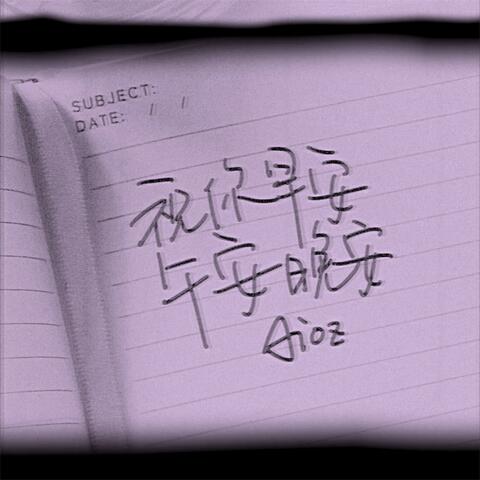 SUBJECT:
DATE: / /
祝你早安
午安晚安
Aioz